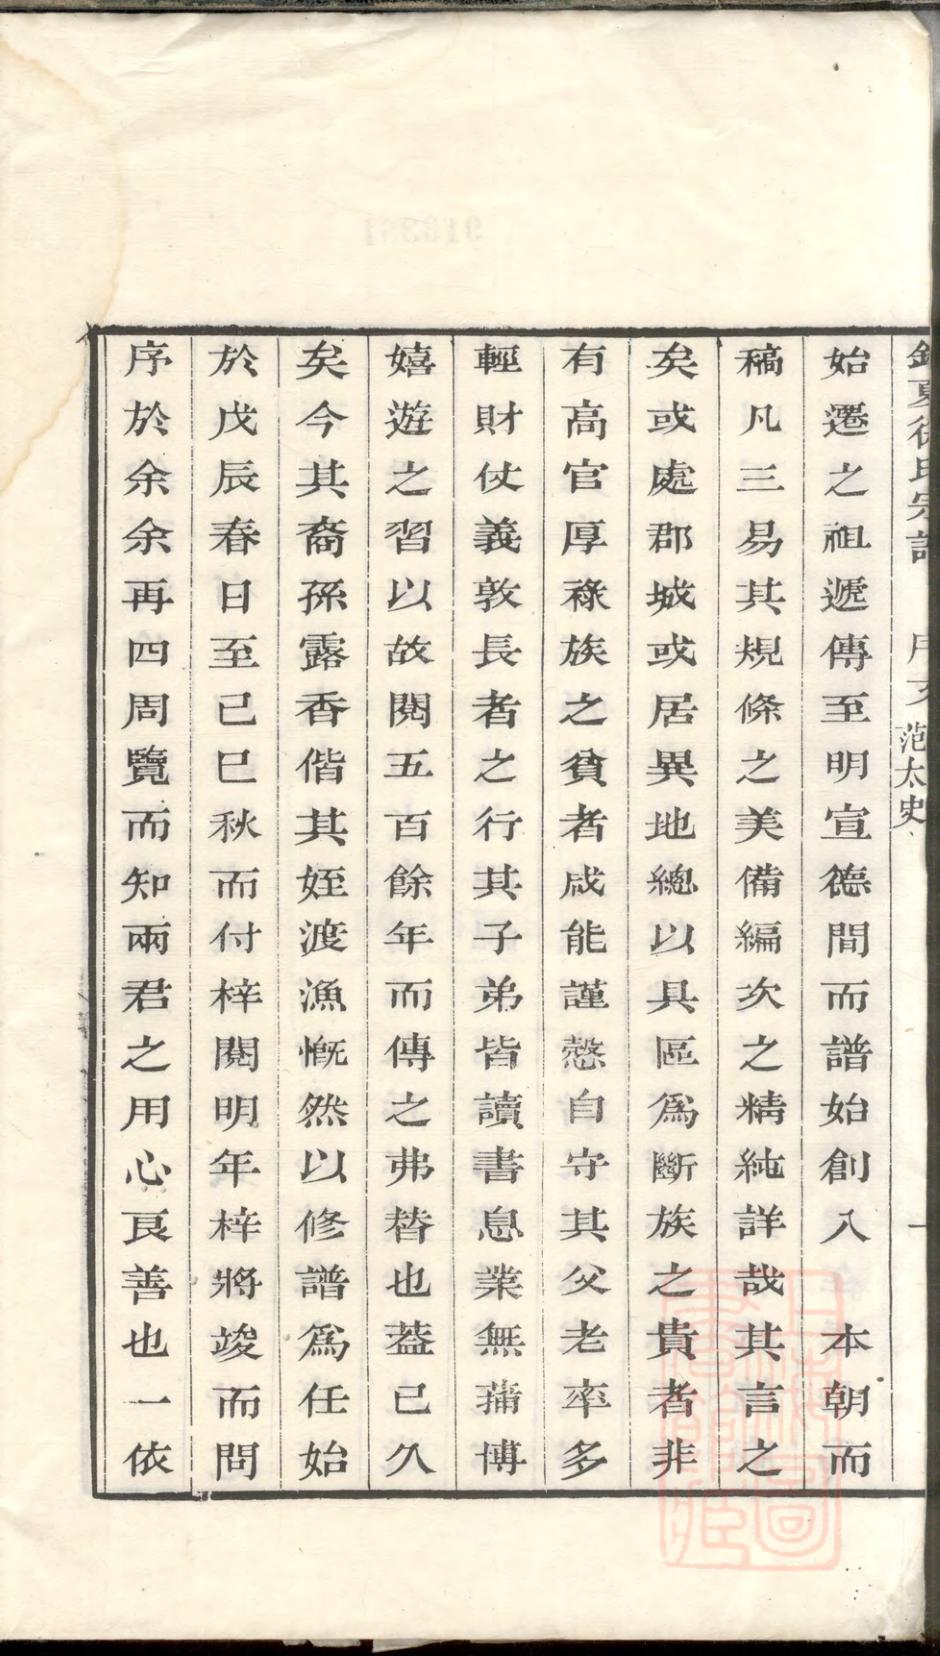 夏徐氏宗譜 序文 范太史 一
始遷之祖遞傳至明宣德間而譜始創入 本朝而
稿凡三易其規條之美備編次之精純詳哉其言之
矣或處郡城或居異地總以具區爲斷族之貴者非
有高官厚祿族之貧者咸能謹慤自守其父老率多
輕財仗義敦長者之行其子弟皆讀書息業無蒲博
嬉遊之習以故閱五百餘年而傳之弗替也蓋已久
矣今其裔孫露香偕其姪渡漁慨然以修譜爲任始
於戊辰春日至己巳秋而付梓閱明年梓將竣而問
序於余余再四周覽而知兩君之用心良善也一依